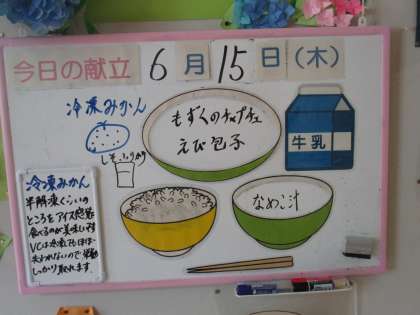 今日の献立 6月15日(木)
冷凍みかん
もずくのチャプチェ
えび包子
牛乳
しそふりかけ
なめこ汁
冷凍みかん
半解凍くらいの
ところをアイス感覚
食べるのが美味しいです
VCは冷凍でもほぼ
失われないので
しっかり取れます